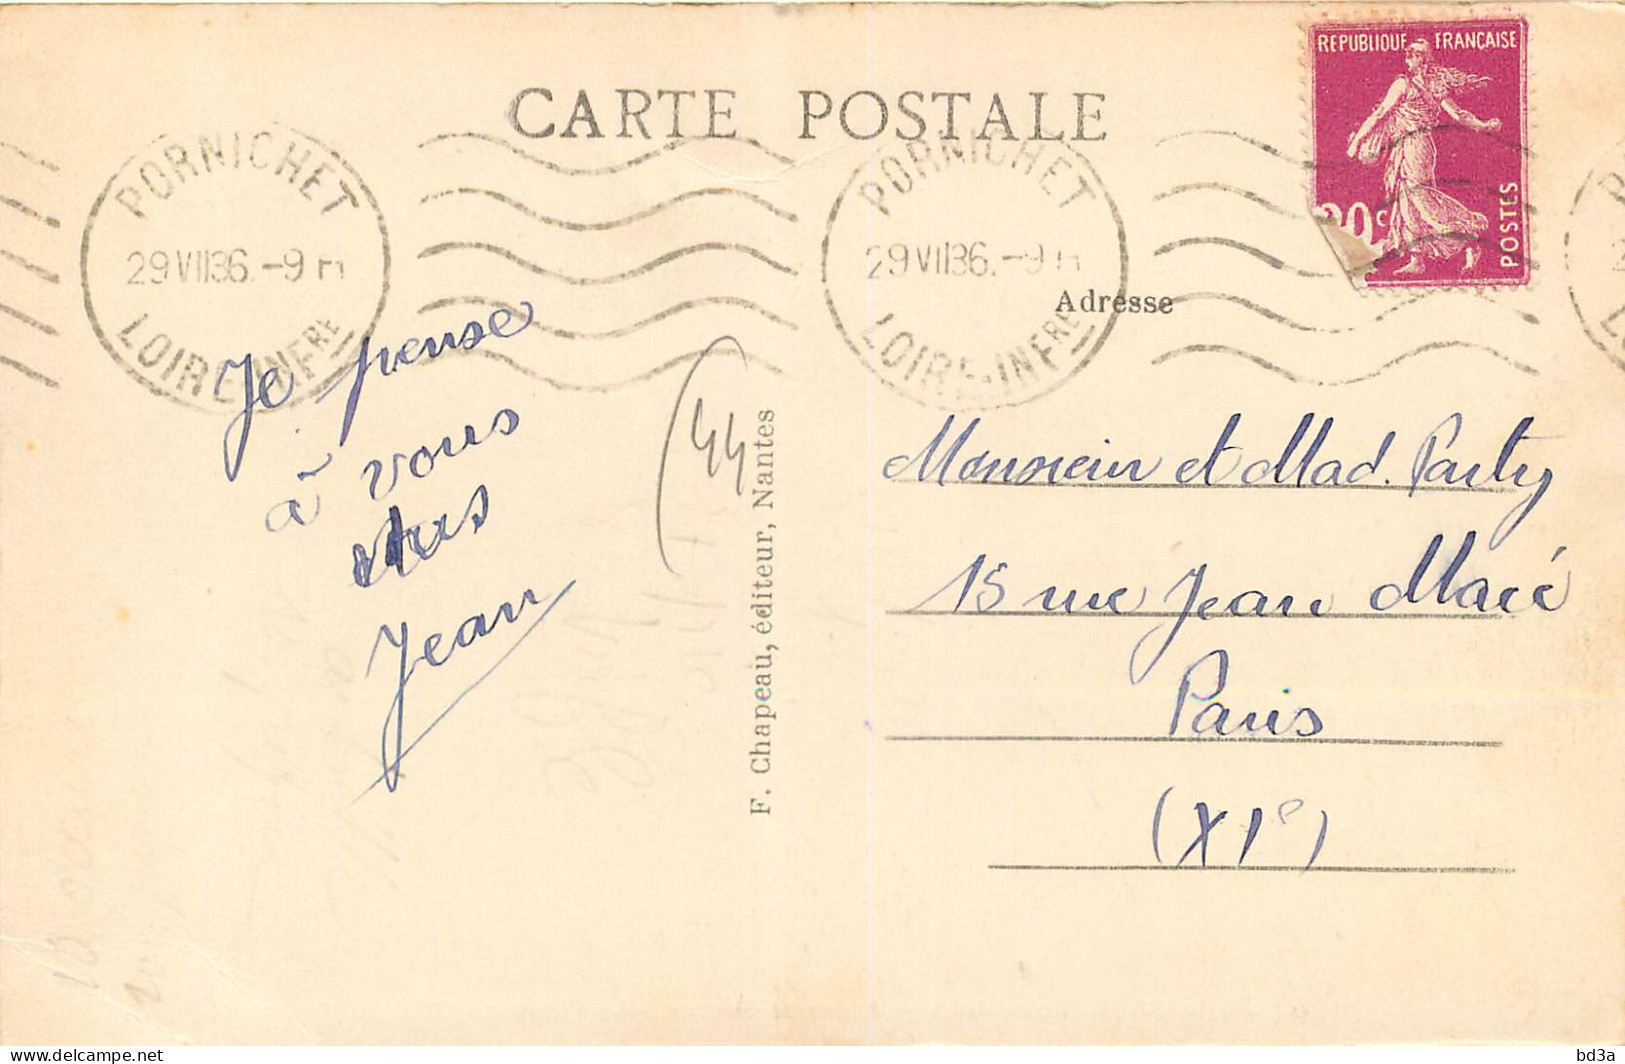 CARTE POSTALE
REPUBLIQUE FRANÇAISE
20c
POSTES
PORNICHET
29 VII 36. - 9 H
LOIRE-INFRE
PORNICHET
29 VII 36. - 9 H
LOIRE-INFRE
Je pense
à vous
Jean
(44
F. Chapeau, éditeur, Nantes
Adresse
Monsieur et Mad. Party
15 rue Jean Macé
Paris
(XIe)
delcampe.net
bd3a